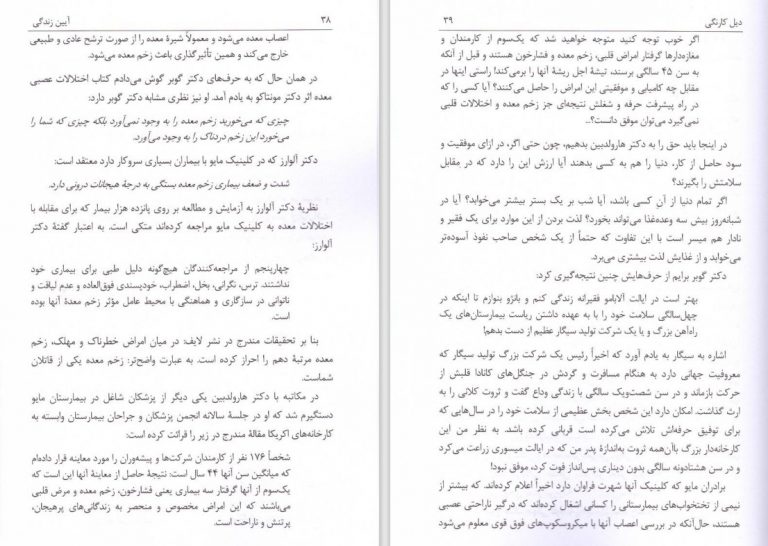 ۳۸
آیین زندگی
اعصاب معده می‌شود و معمولاً شیرهٔ معده را از صورت ترشح عادی و طبیعی
خارج می‌کند و همین تأثیرگذاری باعث زخم معده می‌شود.
در همان حال که به حرف‌های دکتر گوبر گوش می‌دادم کتاب اختلالات عصبی
معده اثر دکتر مونتاکو به یادم آمد. او نیز نظری مشابه دکتر گوبر دارد:
چیزی که می‌خورید زخم معده را به وجود نمی‌آورد بلکه چیزی که شما را
می‌خورد این زخم دردناک را به وجود می‌آورد.
دکتر آلوارز که در کلینیک مایو با بیماران بسیاری سروکار دارد معتقد است:
شدت و ضعف بیماری زخم معده بستگی به درجهٔ هیجانات درونی دارد.
نظریهٔ دکتر آلوارز به آزمایش و مطالعه بر روی پانزده هزار بیمار که برای مقابله با
اختلالات معده به کلینیک مایو مراجعه کرده‌اند متکی است. به اعتبار گفتهٔ دکتر
آلوارز:
چهارپنجم از مراجعه‌کنندگان هیچ‌گونه دلیل طبی برای بیماری خود
نداشتند. ترس، نگرانی، بخل، اضطراب، خودپسندی فوق‌العاده و عدم لیاقت و
ناتوانی در سازگاری و هماهنگی با محیط عامل مؤثر زخم معدهٔ آنها بوده
است.
بنا بر تحقیقات مندرج در نشر لایف: در میان امراض خطرناک و مهلک، زخم
معده مرتبهٔ دهم را احراز کرده است. به عبارت واضح‌تر: زخم معده یکی از قاتلان
شماست.
در مکاتبه با دکتر هارولدبین یکی دیگر از پزشکان شاغل در بیمارستان مایو
دستگیرم شد که او در جلسهٔ سالانه انجمن پزشکان و جراحان بیمارستان وابسته به
کارخانه‌های اکریکا مقالهٔ مندرج در زیر را قرائت کرده است:
شخصاً ۱۷۶ نفر از کارمندان شرکت‌ها و پیشه‌وران را مورد معاینه قرار داده‌ام
که میانگین سن آنها ۴۴ سال است: نتیجهٔ حاصل از معاینهٔ آنها این است که
یک‌سوم از آنها گرفتار سه بیماری یعنی فشارخون، زخم معده و مرض قلبی
می‌باشند که این امراض مخصوص و منحصر به زندگانی‌های پرهیجان،
پرتنش و ناراحت است.
دیل کارنگی
۳۹
اگر خوب توجه کنید متوجه خواهید شد که یک‌سوم از کارمندان و
مغازه‌دارها گرفتار امراض قلبی، زخم معده و فشارخون هستند و قبل از آنکه
به سن ۴۵ سالگی برسند، تیشهٔ اجل ریشهٔ آنها را برمی‌کند! راستی اینها در
مقابل چه کامیابی و موفقیتی این امراض را حاصل می‌کنند؟ آیا کسی را که
در راه پیشرفت حرفه و شغلش نتیجه‌ای جز زخم معده و اختلالات قلبی
نمی‌گیرد می‌توان موفق دانست؟..
در اینجا باید حق را به دکتر هارولدبین بدهیم، چون حتی اگر، در ازای موفقیت و
سود حاصل از کار، دنیا را هم به کسی بدهند آیا ارزش این را دارد که در مقابل
سلامتش را بگیرند؟
اگر تمام دنیا از آن کسی باشد، آیا شب بر یک بستر بیشتر می‌خوابد؟ آیا در
شبانه‌روز بیش سه وعده‌غذا می‌تواند بخورد؟ لذت بردن از این موارد برای یک فقیر و
نادار هم میسر است با این تفاوت که حتماً از یک شخص صاحب نفوذ آسوده‌تر
می‌خوابد و از غذایش لذت بیشتری می‌برد.
دکتر گوبر برایم از حرف‌هایش چنین نتیجه‌گیری کرد:
بهتر است در ایالت آلابامو فقیرانه زندگی کنم و بانژو بنوازم تا اینکه در
چهل‌سالگی سلامت خود را با به عهده داشتن ریاست بیمارستان‌های یک
راه‌آهن بزرگ و یا یک شرکت تولید سیگار عظیم از دست بدهم!
اشاره به سیگار به یادم آورد که اخیراً رئیس یک شرکت بزرگ تولید سیگار که
معروفیت جهانی دارد به هنگام مسافرت و گردش در جنگل‌های کانادا قلبش از
حرکت بازماند و در سن شصت‌ویک سالگی با زندگی وداع گفت و ثروت کلانی را به
ارث گذاشت. امکان دارد این شخص بخش عظیمی از سلامت خود را در سال‌هایی که
برای توفیق حرفه‌اش تلاش می‌کرده است قربانی کرده باشد. به نظر من این
کارخانه‌دار بزرگ باآن‌همه ثروت به‌اندازهٔ پدر من که در ایالت میسوری زراعت می‌کرد
و در سن هشتادونه سالگی بدون دیناری پس‌انداز فوت کرد، موفق نبود!
برادران مایو که کلینیک آنها شهرت فراوان دارد اخیراً اعلام کرده‌اند. که بیشتر از
نیمی از تختخواب‌های بیمارستانی را کسانی اشغال کرده‌اند که درگیر ناراحتی عصبی
هستند، حال‌آنکه در بررسی اعصاب آنها با میکروسکوپ‌های فوق قوی معلوم می‌شود